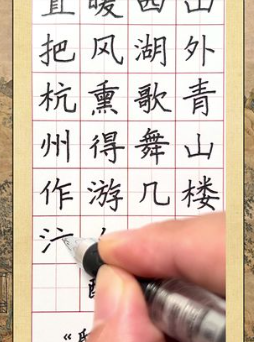 山外青山楼
西湖歌舞几
暖风熏得游
直把杭州作